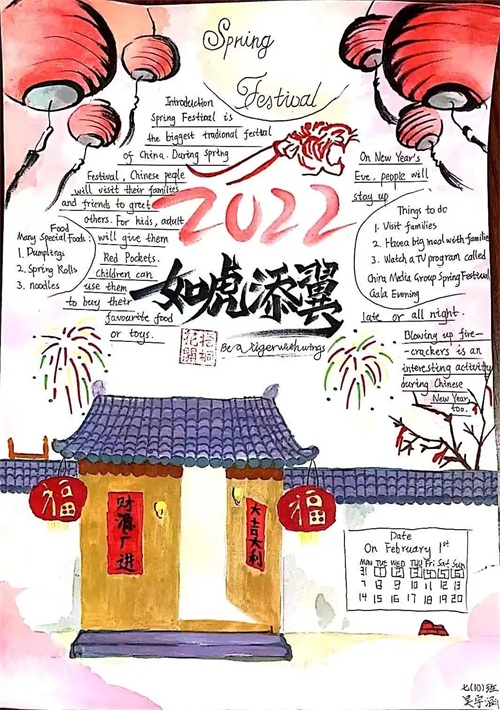 Spring
Festival
Introduction
Spring Festival is
the biggest tradional festival
of China. During spring
Festival, Chinese peqle
will visit their families
and friends to greet
others. For kids, adult
will give them
Red Pockets.
Children can
use them
to buy their
favourite food
or toys.
Food
Many Special foods:
1. Dumplings
2. Spring Rolls
3. noodles
2022
如虎添翼
Be a tiger with wings
On New Year's
Eve, people will
stay up
Things to do
1. Visit families
2. Have a big meal with families
3. Watch a TV program called
China Media Group Spring Festival
Gala Evening
late or all night.
Blowing up fire-
-crackers is an
interesting activity
during Chinese
New Year,
too.
福
财源广进
大吉大利
福
Date
On February 1st
MON TUE WED THU Fri Sat Sun
31 1 2 3 4 5 6
7 8 9 10 11 12 13
14 15 16 17 18 19 20
七(10)班
吴宇涵